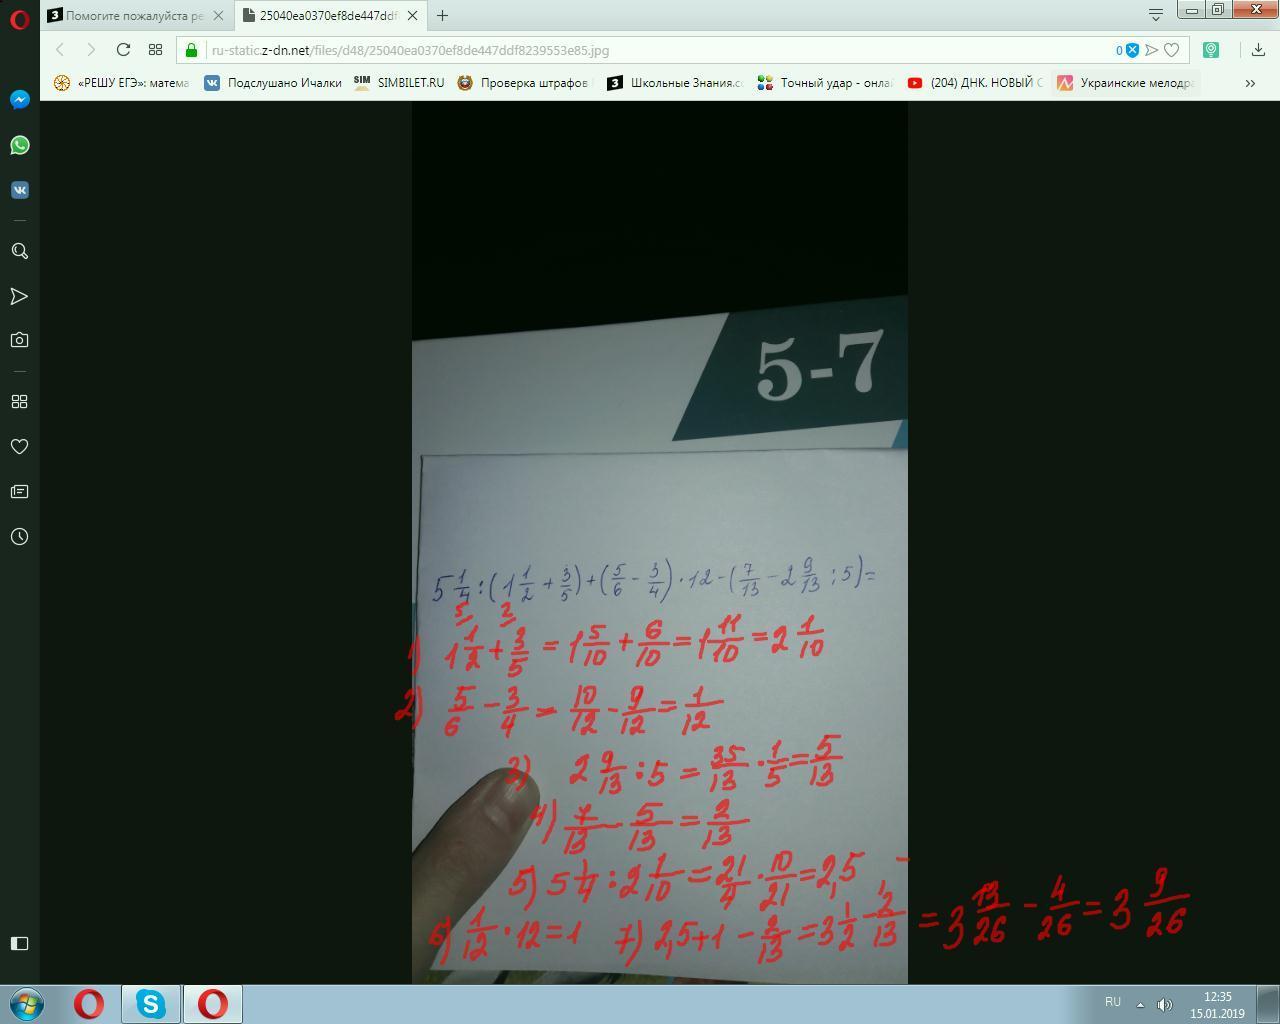 Помогите пожалуйста ре
25040ea0370ef8de447ddf
ru-static.z-dn.net/files/d48/25040ea0370ef8de447ddf8239553e85.jpg
0
«РЕШУ ЕГЭ»: матема Подслушано Ичалки SIM SIMBILET.RU Проверка штрафов Школьные Знания.co Точный удар - онла (204) ДНК. НОВЫЙ С Украинские мелодра »
5-7
5 1/4 : (1 1/2 + 3/5) + (5/6 - 3/4) · 12 - (7/13 - 2 9/13 : 5) =
5 2
1) 1 1/2 + 3/5 = 1 5/10 + 6/10 = 1 11/10 = 2 1/10
2) 5/6 - 3/4 = 10/12 - 9/12 = 1/12
3) 2 9/13 : 5 = 35/13 · 1/5 = 5/13
4) 7/13 - 5/13 = 2/13
5) 5 1/4 : 2 1/10 = 21/4 · 10/21 = 2,5
6) 1/12 · 12 = 1 7) 2,5 + 1 - 2/13 = 3 1/2 - 2/13 = 3 13/26 - 4/26 = 3 9/26
RU 12:35
15.01.2019